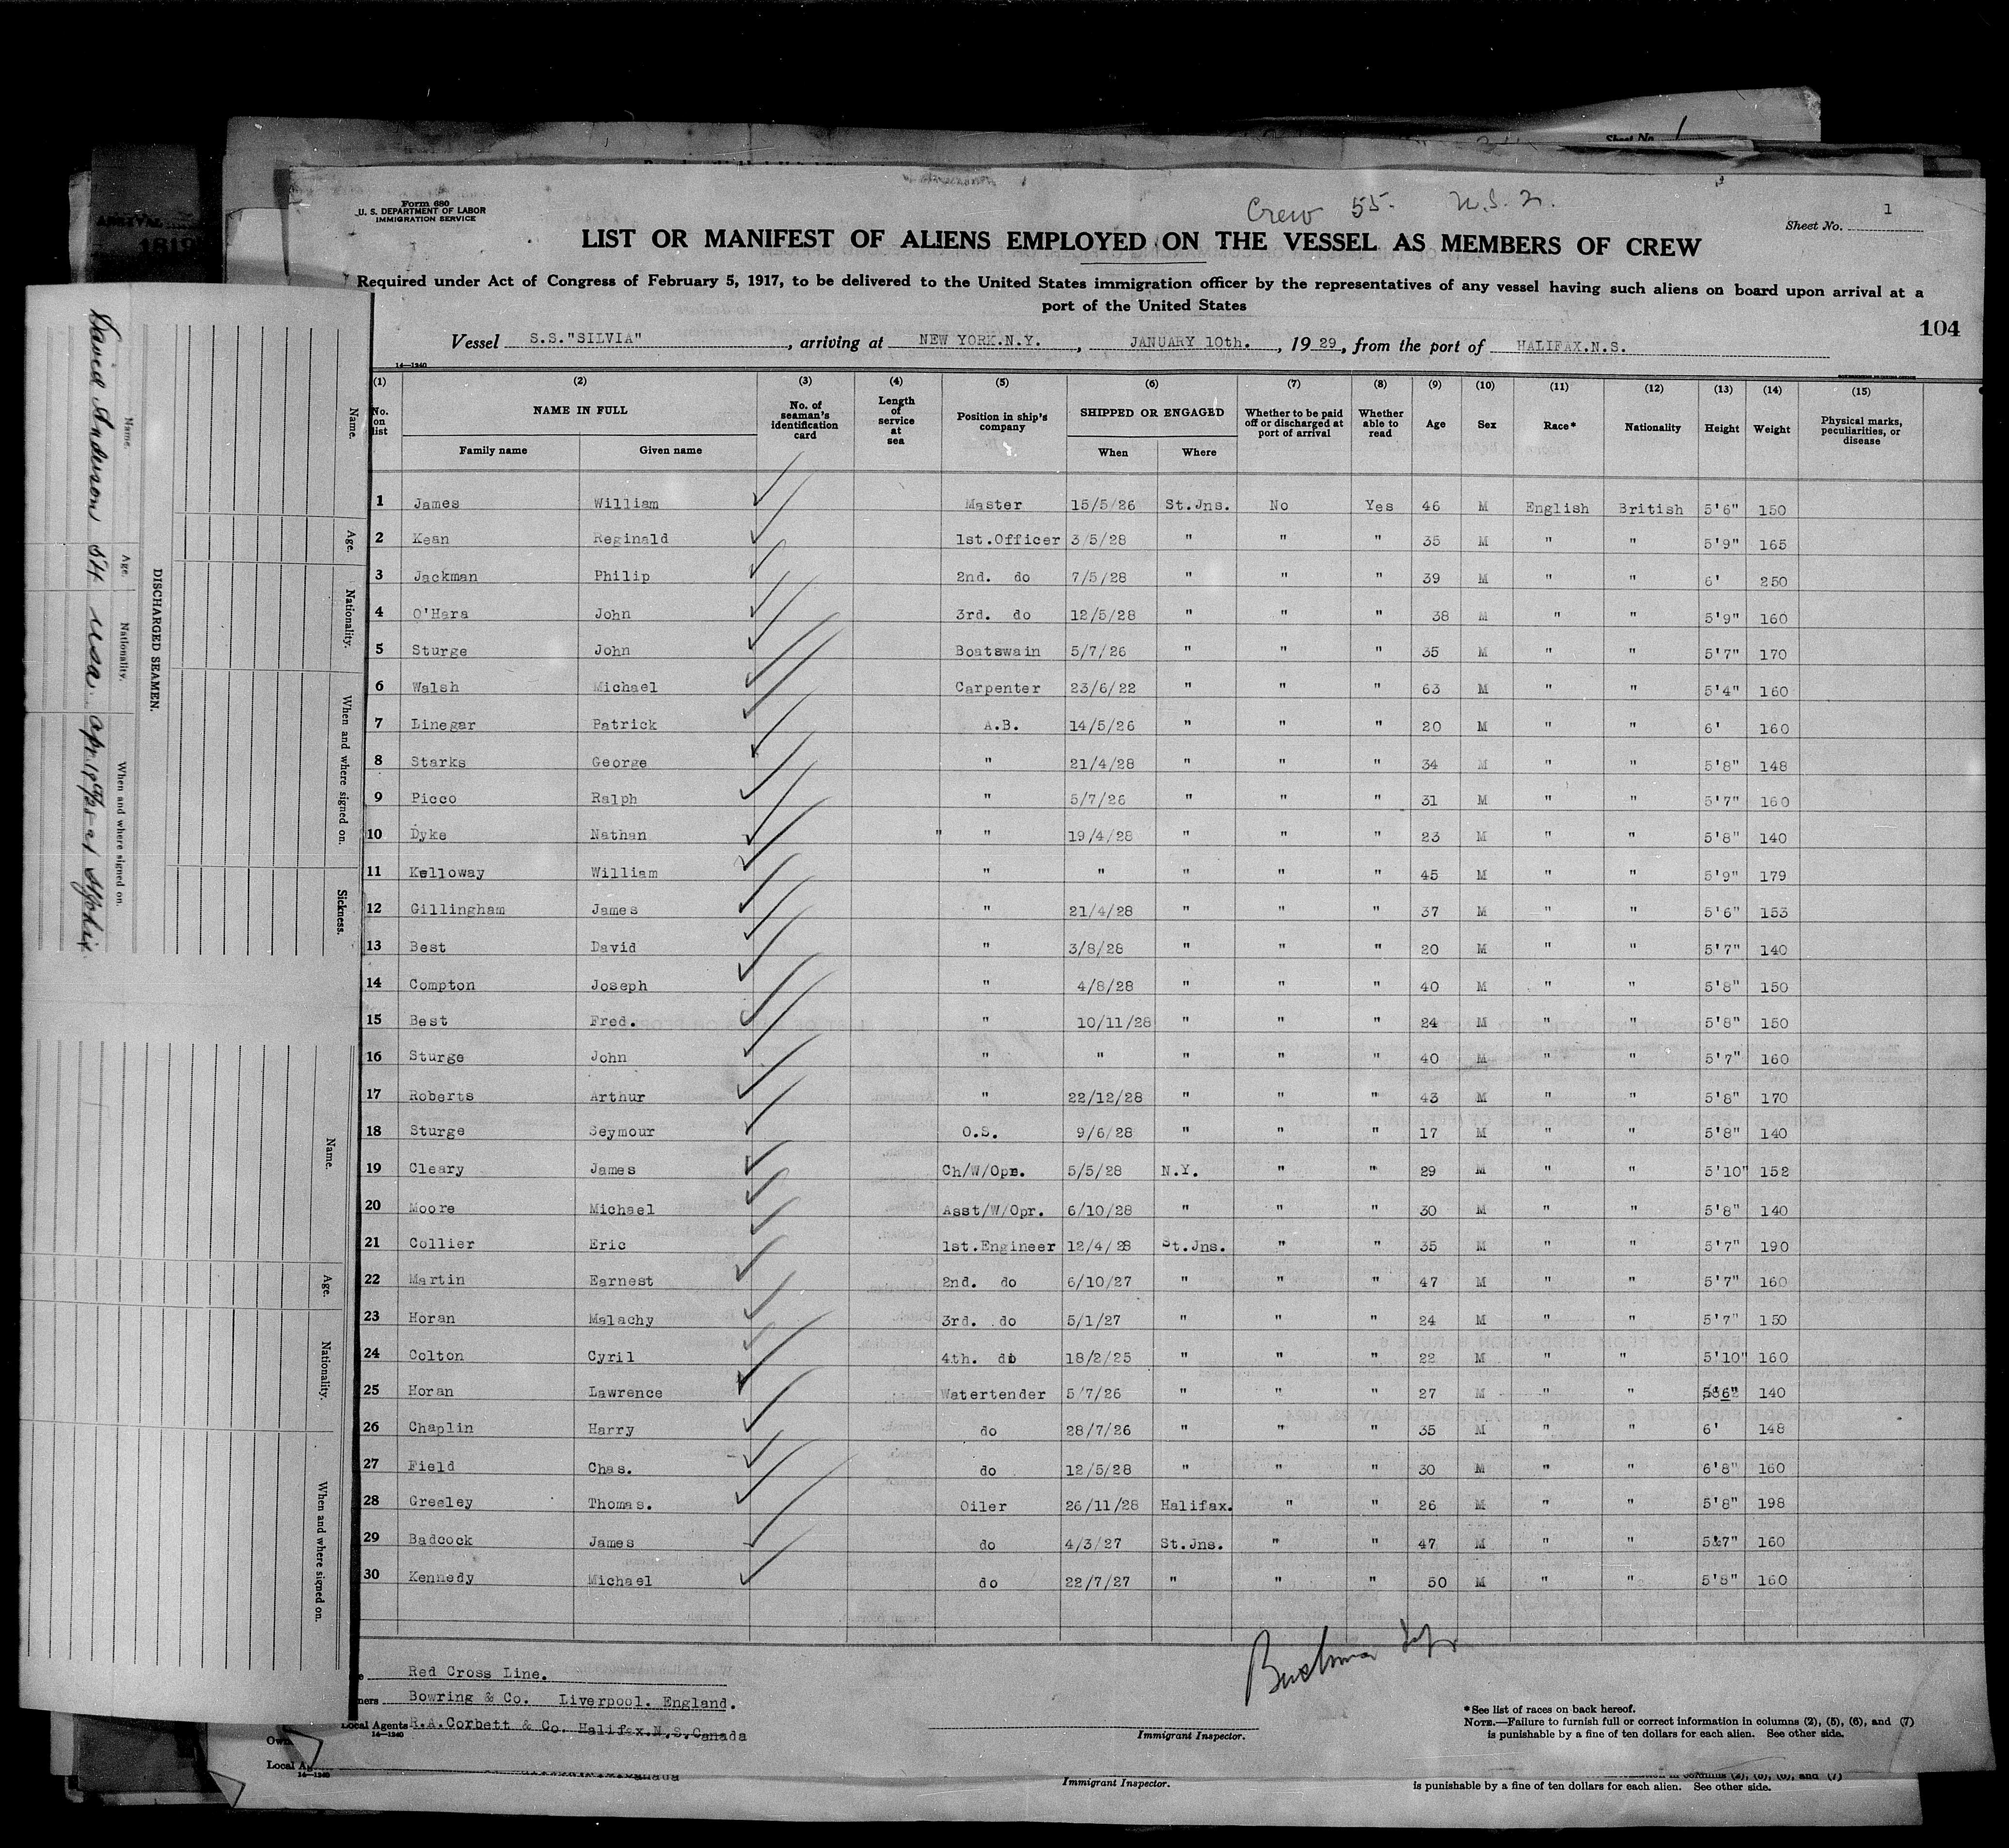 Form 680
U. S. DEPARTMENT OF LABOR
IMMIGRATION SERVICE
Crew 55.
Sheet No. 1
LIST OR MANIFEST OF ALIENS EMPLOYED ON THE VESSEL AS MEMBERS OF CREW
Required under Act of Congress of February 5, 1917, to be delivered to the United States immigration officer by the representatives of any vessel having such aliens on board upon arrival at a
port of the United States
104
Vessel S.S."SILVIA", arriving at NEW YORK.N.Y., JANUARY 10th., 1929, from the port of HALIFAX.N.S.
14—1240
(1) (2) (3) (4) (5) (6) (7) (8) (9) (10) (11) (12) (13) (14) (15)
No. on list NAME IN FULL No. of seaman's identification card Length of service at sea Position in ship's company SHIPPED OR ENGAGED Whether to be paid off or discharged at port of arrival Whether able to read Age Sex Race* Nationality Height Weight Physical marks, peculiarities, or disease
Family name Given name When Where
1 James William Master 15/5/26 St.Jns. No Yes 46 M English British 5'6" 150
2 Kean Reginald 1st.Officer 3/5/28 " " " 35 M " " 5'9" 165
3 Jackman Philip 2nd. do 7/5/28 " " " 39 M " " 6' 250
4 O'Hara John 3rd. do 12/5/28 " " " 38 M " " 5'9" 160
5 Sturge John Boatswain 5/7/26 " " " 35 M " " 5'7" 170
6 Walsh Michael Carpenter 23/6/22 " " " 63 M " " 5'4" 160
7 Linegar Patrick A.B. 14/5/26 " " " 20 M " " 6' 160
8 Starks George " 21/4/28 " " " 34 M " " 5'8" 148
9 Picco Ralph " 5/7/26 " " " 31 M " " 5'7" 160
10 Dyke Nathan " " 19/4/28 " " " 23 M " " 5'8" 140
11 Kelloway William " " " " " 45 M " " 5'9" 179
12 Gillingham James " 21/4/28 " " " 37 M " " 5'6" 153
13 Best David " 3/8/28 " " " 20 M " " 5'7" 140
14 Compton Joseph " 4/8/28 " " " 40 M " " 5'8" 150
15 Best Fred. " 10/11/28 " " " 24 M " " 5'8" 150
16 Sturge John " " " " " 40 M " " 5'7" 160
17 Roberts Arthur " 22/12/28 " " " 43 M " " 5'8" 170
18 Sturge Seymour O.S. 9/6/28 " " " 17 M " " 5'8" 140
19 Cleary James Ch/W/Opr. 5/5/28 N.Y. " " 29 M " " 5'10" 152
20 Moore Michael Asst/W/Opr. 6/10/28 " " " 30 M " " 5'8" 140
21 Collier Eric 1st.Engineer 12/4/28 St.Jns. " " 35 M " " 5'7" 190
22 Martin Earnest 2nd. do 6/10/27 " " " 47 M " " 5'7" 160
23 Horan Malachy 3rd. do 5/1/27 " " " 24 M " " 5'7" 150
24 Colton Cyril 4th. do 18/2/25 " " " 22 M " " 5'10" 160
25 Horan Lawrence Watertender 5/7/26 " " " 27 M " " 5'6" 140
26 Chaplin Harry do 28/7/26 " " " 35 M " " 6' 148
27 Field Chas. do 12/5/28 " " " 30 M " " 6'8" 160
28 Greeley Thomas. Oiler 26/11/28 Halifax. " " 26 M " " 5'8" 198
29 Badcock James do 4/3/27 St.Jns. " " 47 M " " 5'7" 160
30 Kennedy Michael do 22/7/27 " " " 50 M " " 5'8" 160
Red Cross Line.
Bowring & Co. Liverpool. England.
Local Agents R.A.Corbett & Co. Halifax.N.S.Canada
14—1240
Immigrant Inspector.
*See list of races on back hereof.
NOTE.—Failure to furnish full or correct information in columns (2), (5), (6), and (7)
is punishable by a fine of ten dollars for each alien. See other side.
Local Ag
14—1240
Immigrant Inspector.
is punishable by a fine of ten dollars for each alien. See other side.
Sheet No. 1
DISCHARGED SEAMEN.
Name. Age. Nationality. When and where signed on.
David Anderson 54 USA
Name. Age. Nationality. When and where signed on. Sickness.
Name. Age. Nationality. When and where signed on.